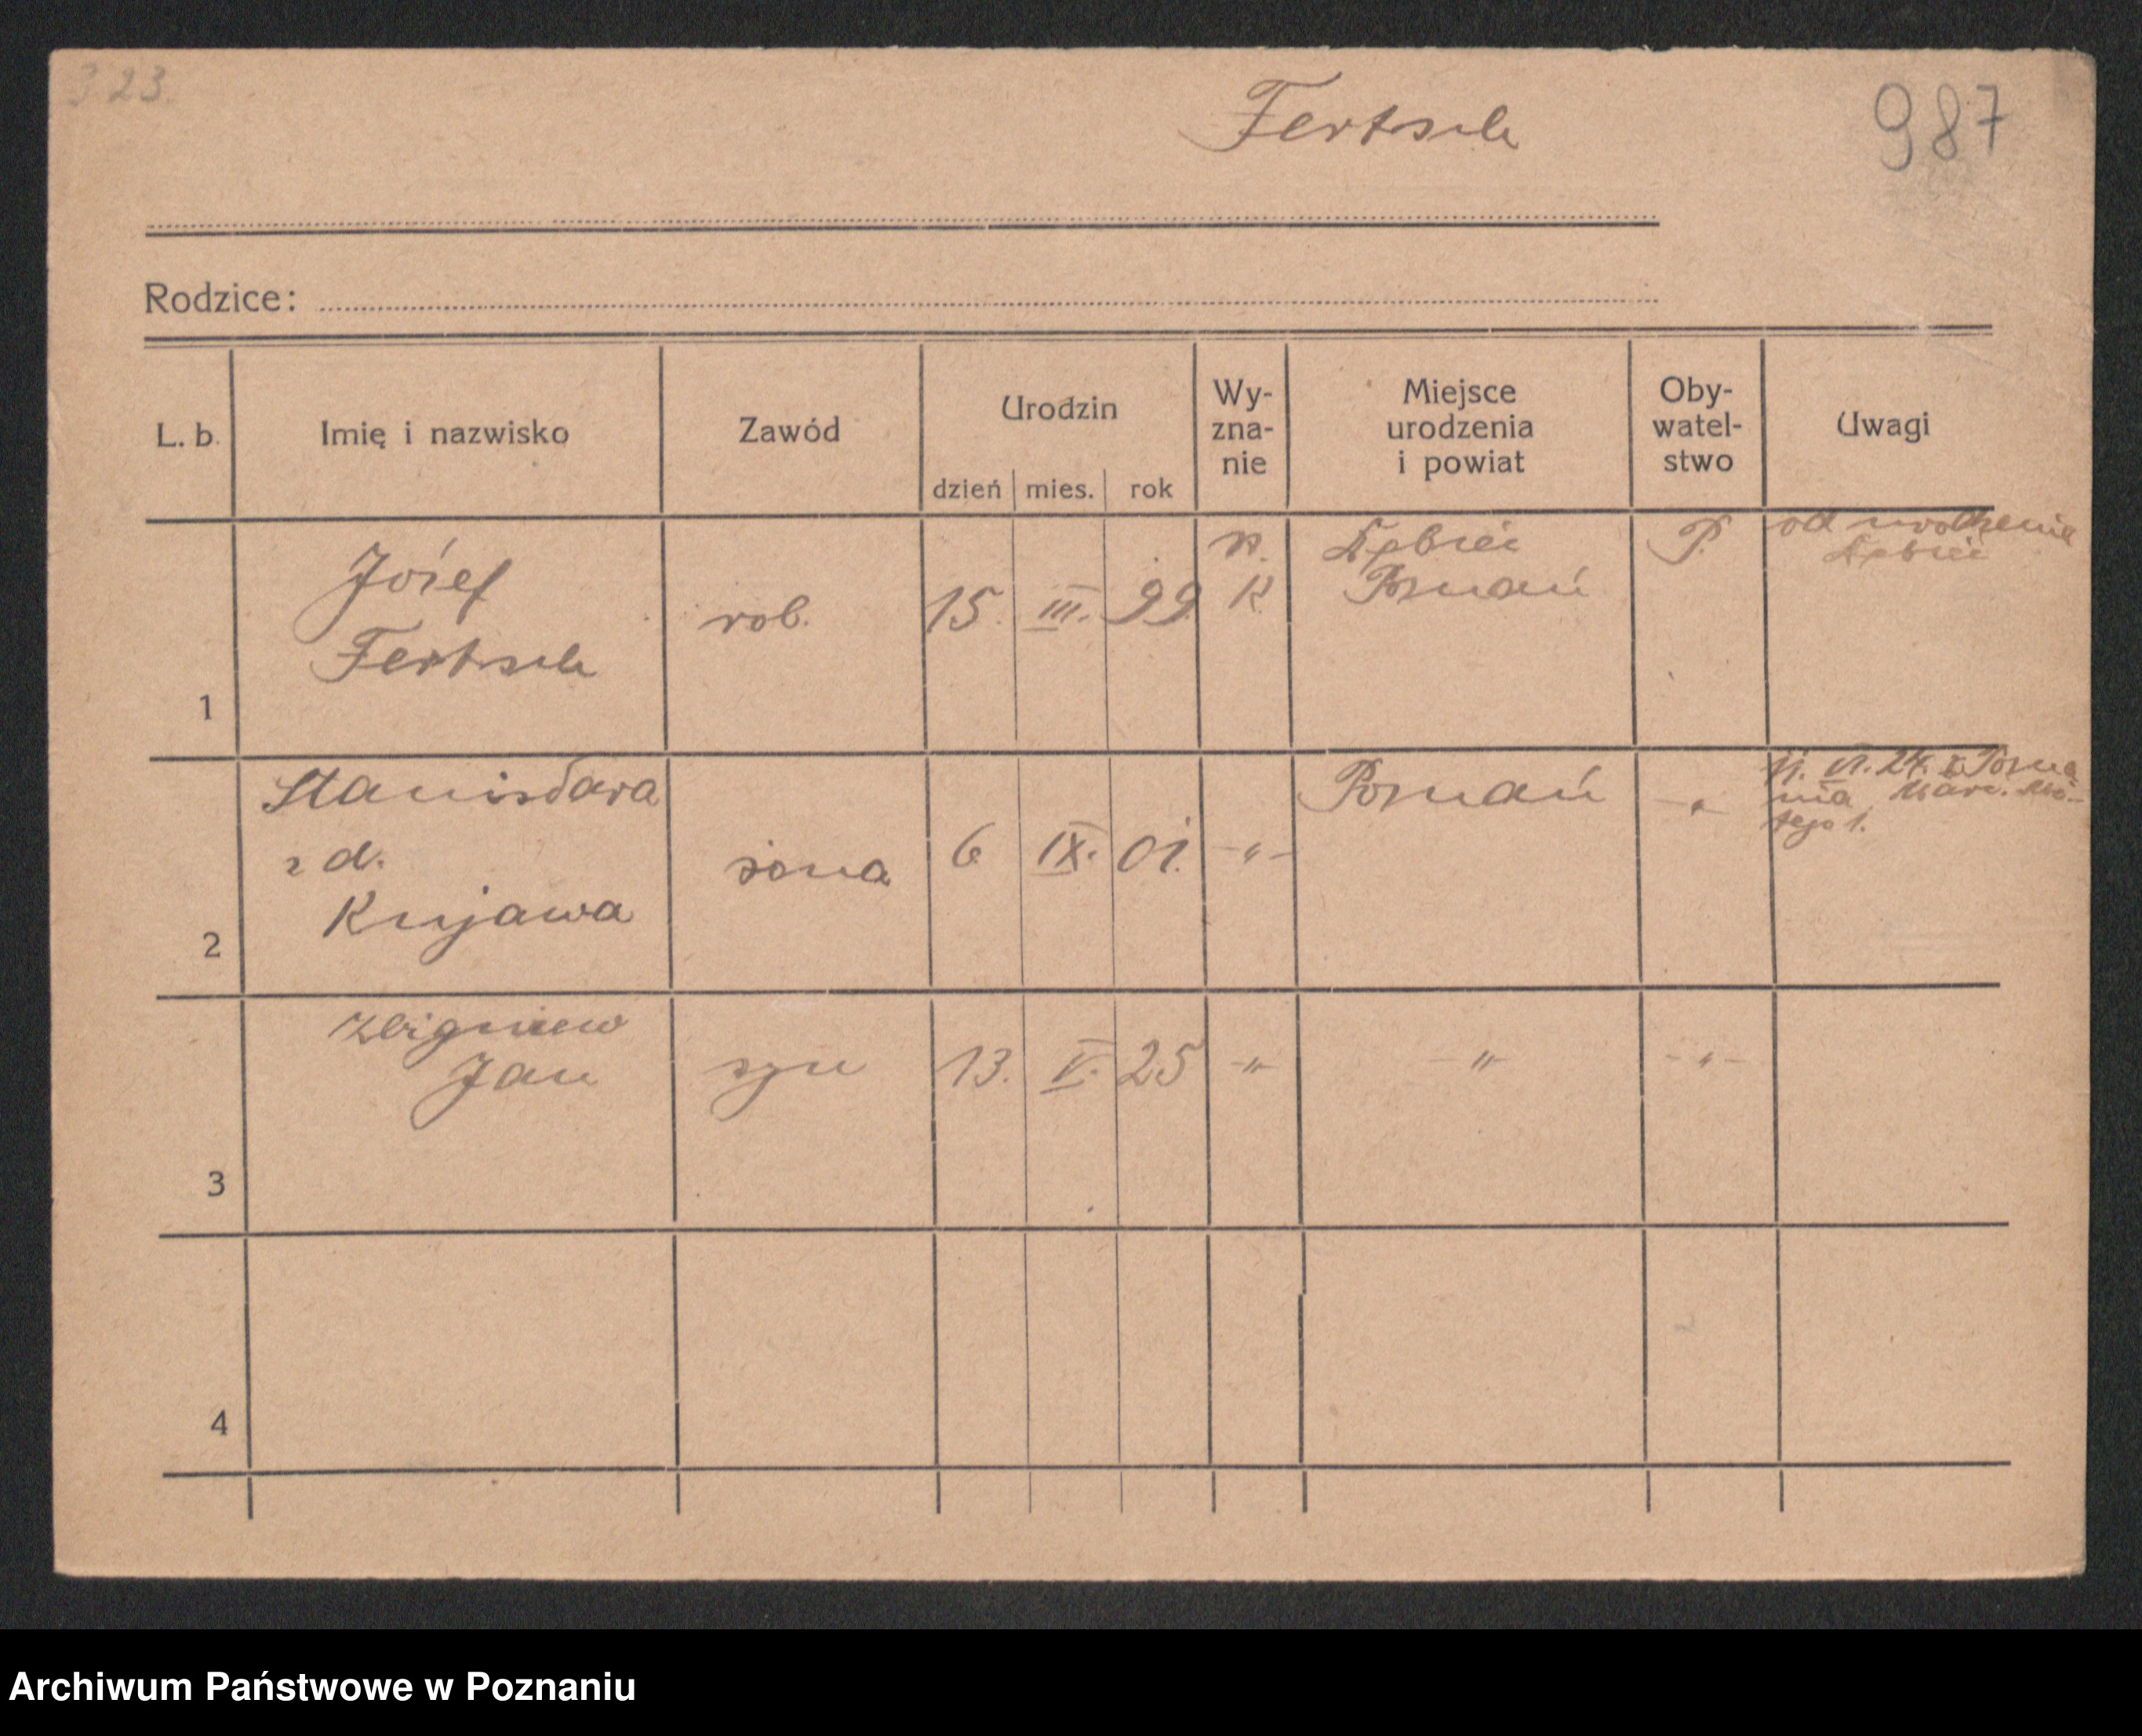 323.
Fertsch
987
Rodzice:
L. b. Imię i nazwisko Zawód Urodzin dzień mies. rok Wy-zna-nie Miejsce urodzenia i powiat Oby-watel-stwo Uwagi
1 Józef Fertsch rob. 15. III. 99. R. K. Dębiec Poznań P. od urodzenia Dębiec
2 Stanisława z d. Kujawa żona 6 IX. 01. -"- Poznań -"- 11. VI. 24. z Pozna nia, Marc. Mo- tego 1.
3 Zbigniew Jan syn 13. V. 25 -"- -"- -"-
4
Archiwum Państwowe w Poznaniu